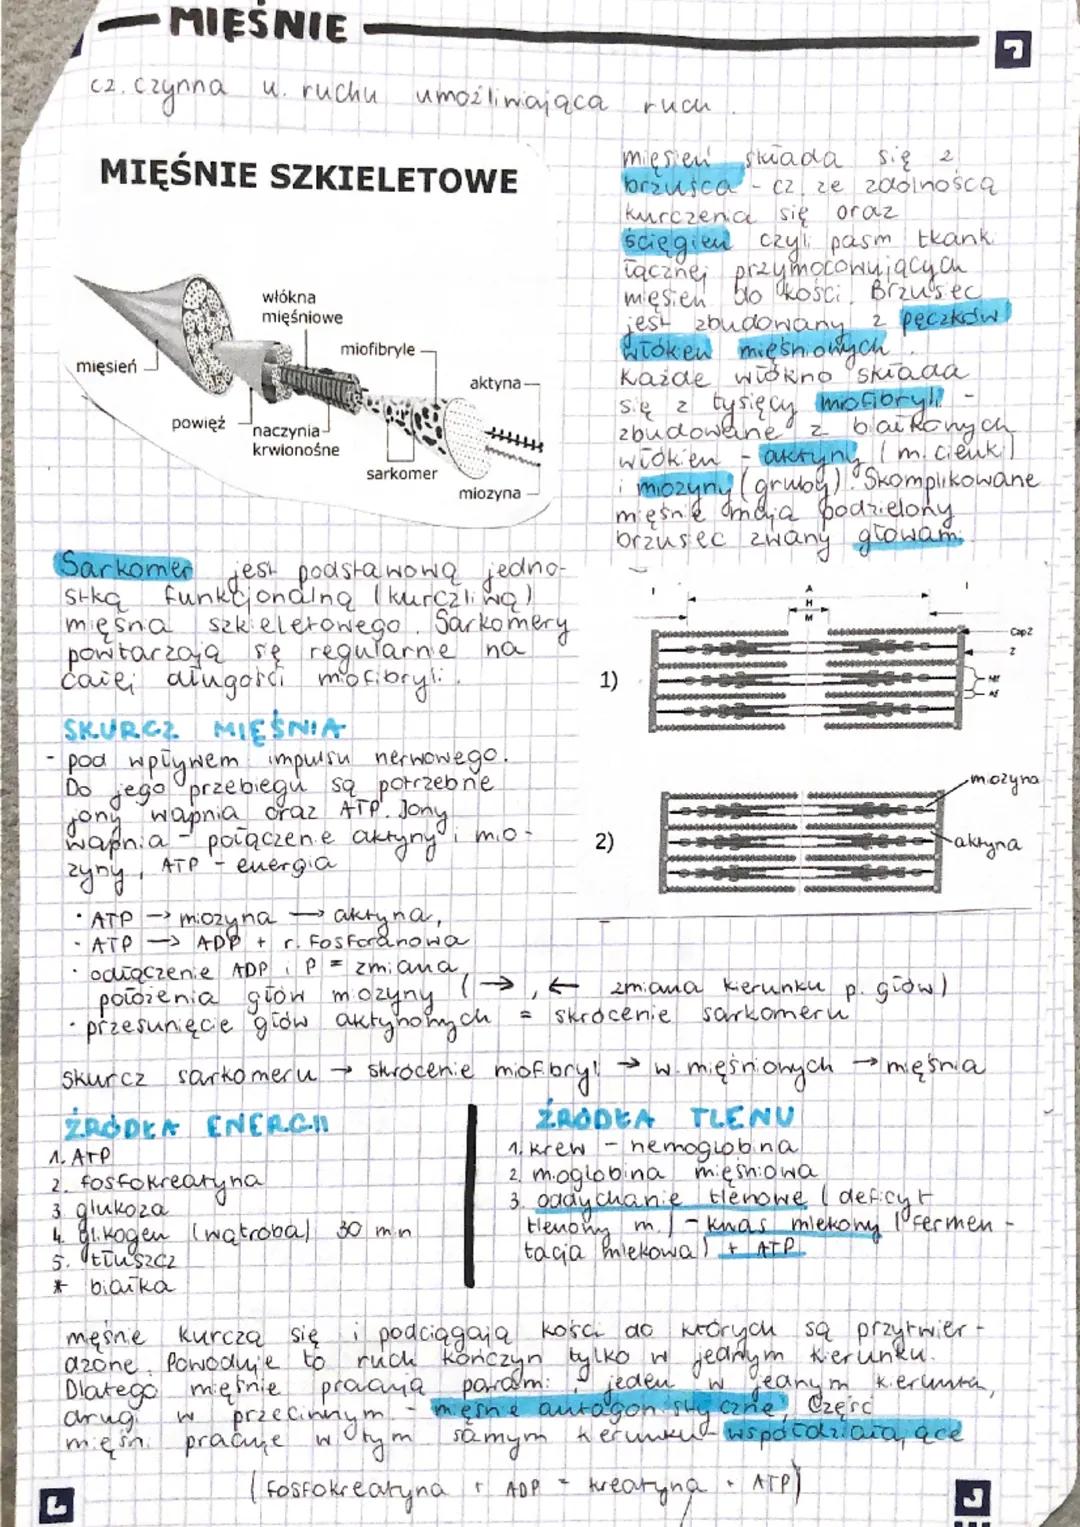 MIĘŚNIE
cz. czynna u. ruchu umożliwiająca ruch.
MIĘŚNIE SZKIELETOWE
włókna
mięśniowe
miofibryle
mięsień
aktyna
powięź
naczynia
krwionośne
sarkomer
miozyna
mięsień składa się z
brzuśca - cz. ze zdolnością
kurczenia się oraz
ścięgien czyli pasm tkank.
łącznej przymocowujących
mięsień do kości. Brzusiec
jest zbudowany z pęczków
włókien mięśniowych.
Każde włókno składa
się z tysięcy miofibryli -
zbudowane z białkowych
włókien - aktyny (m. cienki)
i miozyny (gruby). Skomplikowane
mięśnie mają podzielony
brzusiec zwany głowami.
Sarkomer jest podstawową jedno-
stką funkcjonalną (kurczliwą)
mięśnia szkieletowego. Sarkomery
powtarzają się regularnie na
całej długości miofibryli.
A
H
M
Cap Z
Z
1)
Mf
Af
SKURCZ MIĘŚNIA
- pod wpływem impulsu nerwowego.
Do jego przebiegu są potrzebne
jony wapnia oraz ATP. Jony
wapnia - połączenie aktyny i mio-
zyny, ATP - energia
2)
miozyna
aktyna
· ATP → miozyna → aktyna,
· ATP → ADP + r. fosforanowa
· odłączenie ADP i P = zmiana
położenia głów miozyny (→, ← zmiana kierunku p. głów)
· przesunięcie głów aktynowych = skrócenie sarkomeru
skurcz sarkomeru → skrócenie miofibryl → w. mięśniowych → mięśnia
ŹRÓDŁA ENERGII
1. ATP
2. fosfokreatyna
3. glukoza
4. glikogen (wątroba) 30 min
5. tłuszcz
* białka
ŹRÓDŁA TLENU
1. krew - hemoglobina
2. mioglobina mięśniowa
3. oddychanie tlenowe (deficyt
tlenowy m.) - kwas mlekowy (fermen-
tacja mlekowa) + ATP
mięśnie kurczą się i podciągają kości do których są przytwier-
dzone. Powoduje to ruch kończyn tylko w jednym kierunku.
Dlatego mięśnie pracują parami: jeden w jednym kierunku,
drugi w przeciwnym - mięśnie antagonistyczne, Część
mięśni pracuje w tym samym kierunku - współdziałające
(fosfokreatyna + ADP = kreatyna + ATP)